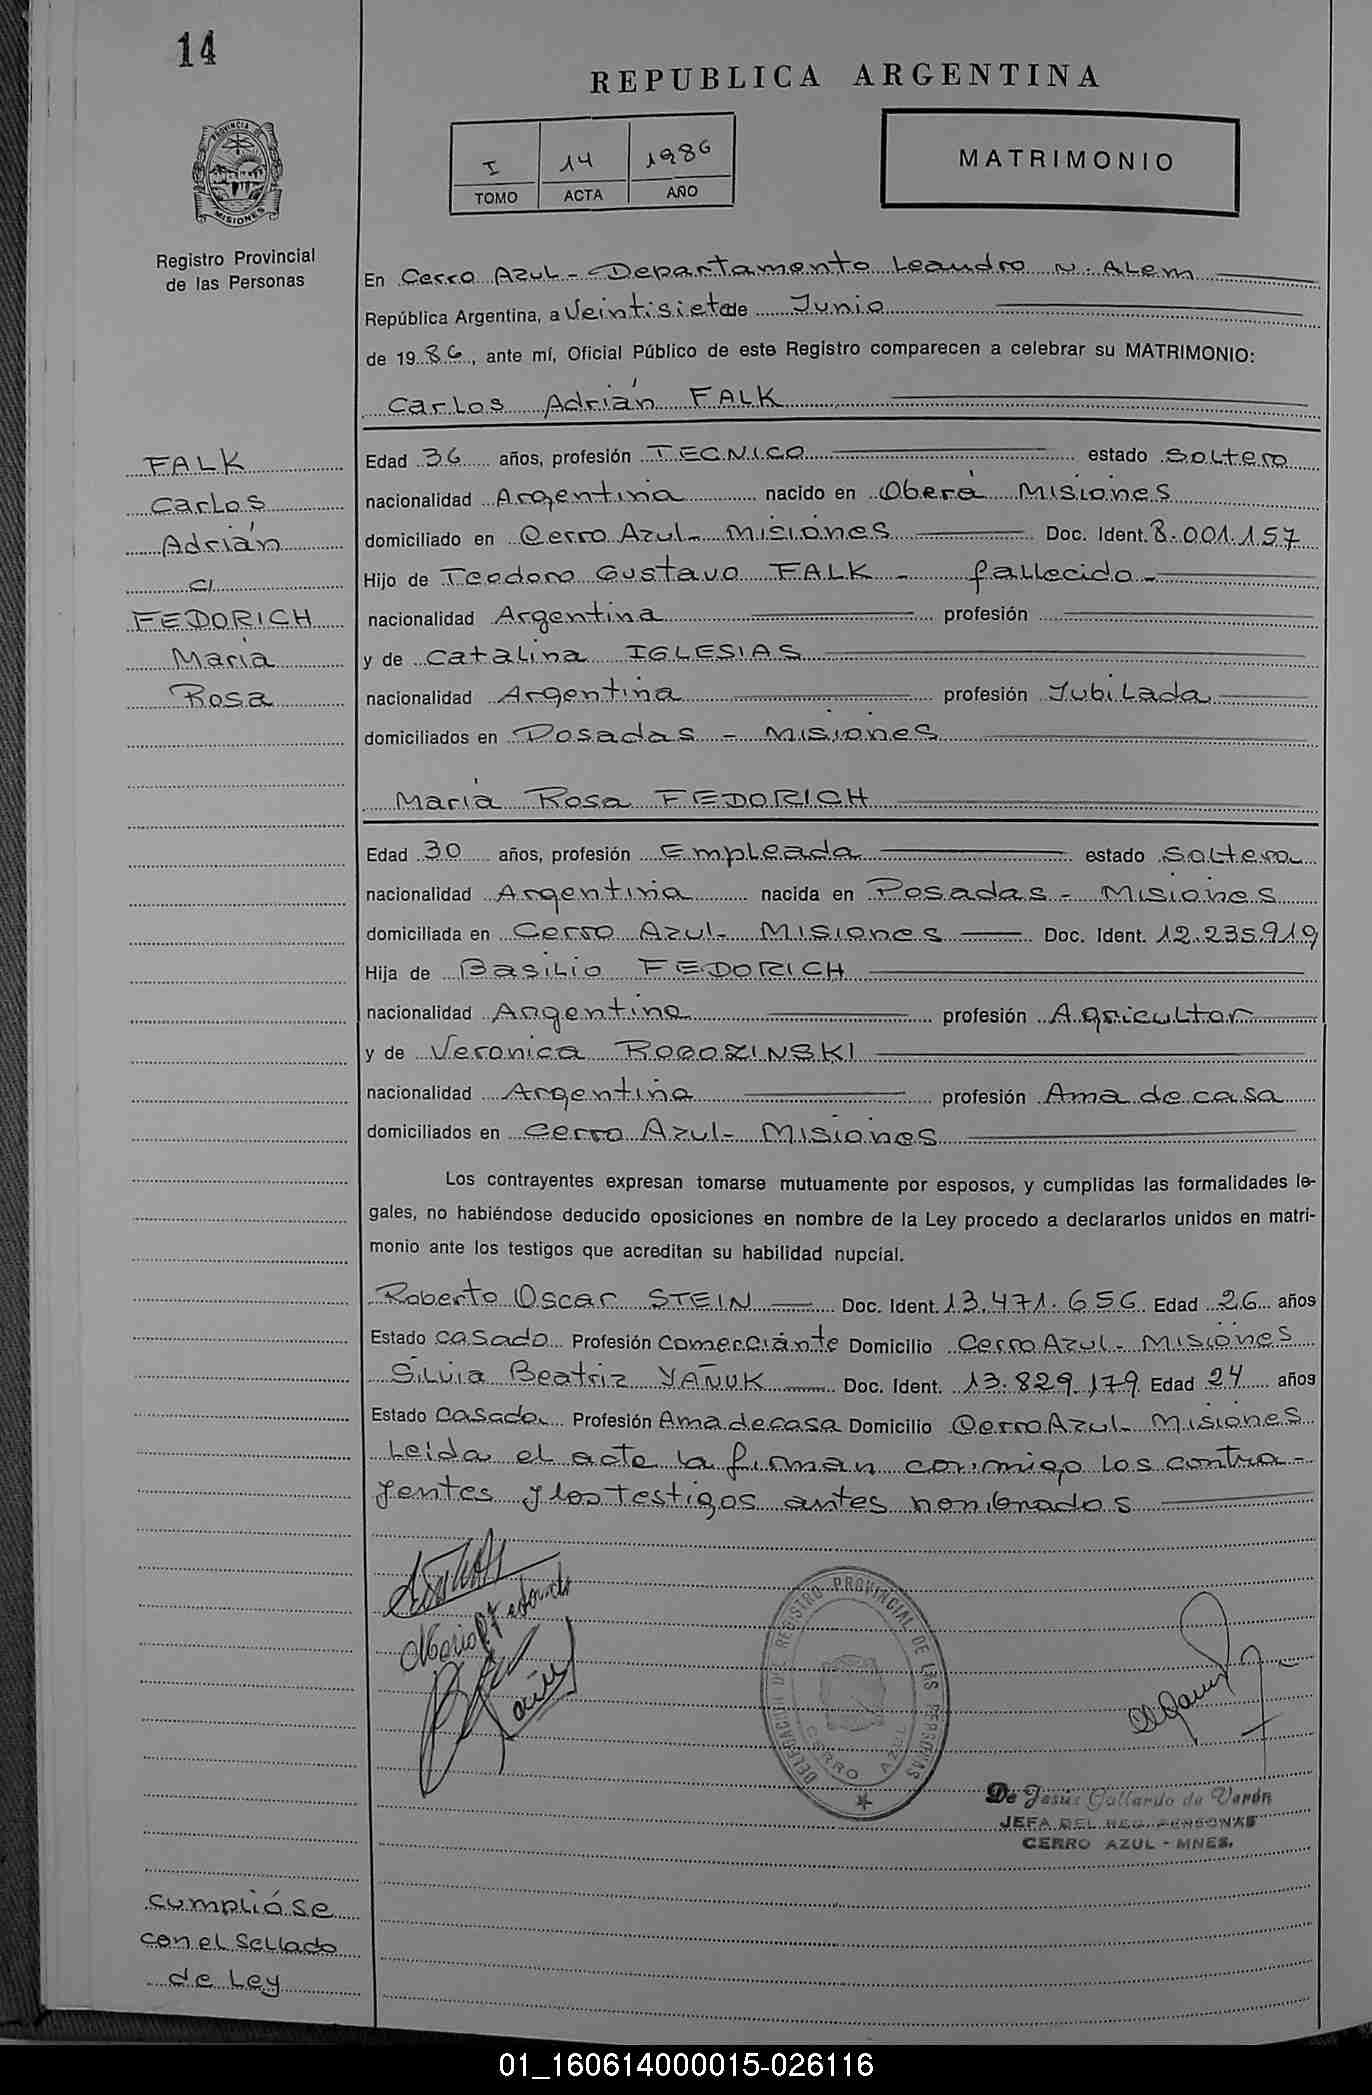 14
REPUBLICA ARGENTINA
I 14 1986
TOMO ACTA AÑO
MATRIMONIO
PROVINCIA DE
MISIONES
Registro Provincial
de las Personas
En Cerro Azul - Departamento Leandro N. Alem
República Argentina, a Veintisiete de Junio
de 1986, ante mí, Oficial Público de este Registro comparecen a celebrar su MATRIMONIO:
Carlos Adrián FALK
FALK
Carlos
Adrián
c/
FEDORICH
María
Rosa
Edad 36 años, profesión TECNICO estado Soltero
nacionalidad Argentina nacido en Oberá Misiones
domiciliado en Cerro Azul - Misiones Doc. Ident. 8.001.157
Hijo de Teodoro Gustavo FALK - fallecido -
nacionalidad Argentina profesión
y de Catalina IGLESIAS
nacionalidad Argentina profesión Jubilada
domiciliados en Posadas - Misiones
María Rosa FEDORICH
Edad 30 años, profesión Empleada estado Soltera
nacionalidad Argentina nacida en Posadas - Misiones
domiciliada en Cerro Azul - Misiones Doc. Ident. 12.235.919
Hija de Basilio FEDORICH
nacionalidad Argentina profesión Agricultor
y de Veronica ROGOZINSKI
nacionalidad Argentina profesión Ama de casa
domiciliados en Cerro Azul - Misiones
Los contrayentes expresan tomarse mutuamente por esposos, y cumplidas las formalidades le-
gales, no habiéndose deducido oposiciones en nombre de la Ley procedo a declararlos unidos en matri-
monio ante los testigos que acreditan su habilidad nupcial.
Roberto Oscar STEIN Doc. Ident. 13.471.656 Edad 26 años
Estado casado Profesión comerciante Domicilio Cerro Azul - Misiones
Silvia Beatriz YAÑUK Doc. Ident. 13.829.179 Edad 24 años
Estado casada Profesión Ama de casa Domicilio Cerro Azul - Misiones
Leida el acta la firman conmigo los contra-
yentes y los testigos antes nombrados
DELEGACION DEL REGISTRO PROVINCIAL DE LAS PERSONAS
CERRO AZUL
De Jesús Gallardo de Verón
JEFA DEL REG. PERSONAS
CERRO AZUL - MNES.
cumplióse
con el Sellado
de Ley
01_160614000015-026116